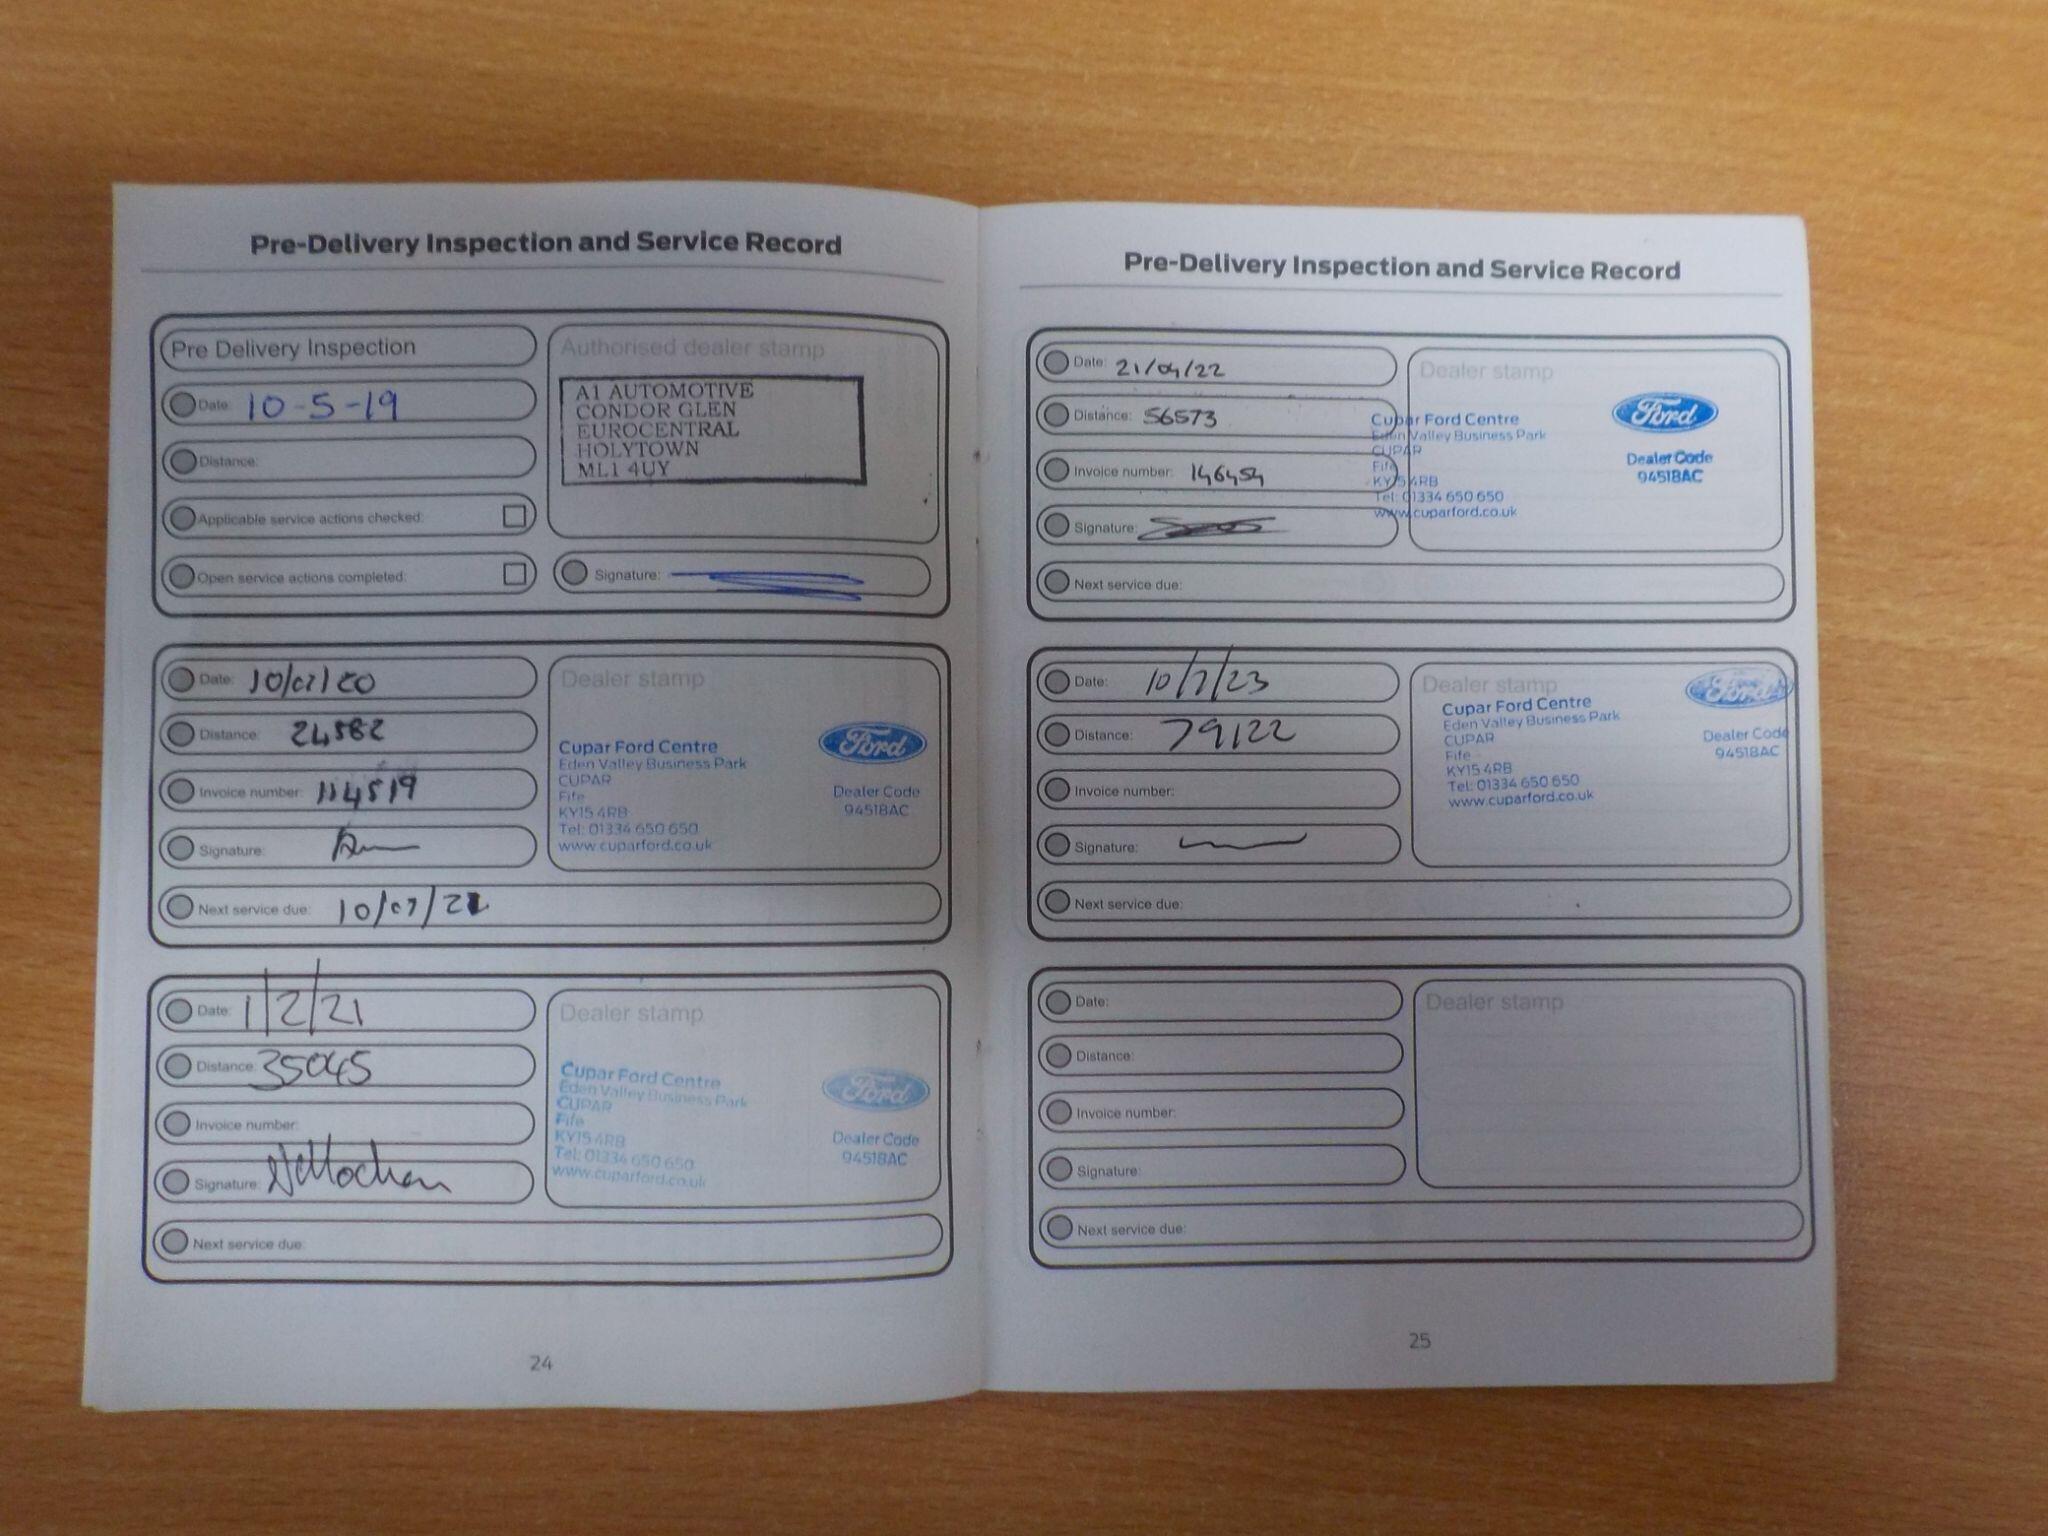 Pre-Delivery Inspection and Service Record
Pre Delivery Inspection
Date: 10-5-19
Distance:
Applicable service actions checked:
Open service actions completed:
Authorised dealer stamp
A1 AUTOMOTIVE
CONDOR GLEN
EUROCENTRAL
HOLYTOWN
ML1 4UY
Signature:
Date: 10/07/20
Distance: 24582
Invoice number: 114519
Signature:
Dealer stamp
Cupar Ford Centre
Eden Valley Business Park
CUPAR
Fife
KY15 4RB
Tel: 01334 650 650
www.cuparford.co.uk
Ford
Dealer Code
94518AC
Next service due: 10/07/21
Date: 1/2/21
Distance: 35045
Invoice number:
Signature:
Dealer stamp
Cupar Ford Centre
Eden Valley Business Park
CUPAR
Fife
KY15 4RB
Tel: 01334 650 650
www.cuparford.co.uk
Ford
Dealer Code
94518AC
Next service due:
24
Pre-Delivery Inspection and Service Record
Date: 21/04/22
Distance: 56573
Invoice number: 146454
Signature:
Dealer stamp
Cupar Ford Centre
Eden Valley Business Park
CUPAR
Fife
KY15 4RB
Tel: 01334 650 650
www.cuparford.co.uk
Ford
Dealer Code
94518AC
Next service due:
Date: 10/7/23
Distance: 79122
Invoice number:
Signature:
Dealer stamp
Cupar Ford Centre
Eden Valley Business Park
CUPAR
Fife
KY15 4RB
Tel: 01334 650 650
www.cuparford.co.uk
Ford
Dealer Code
94518AC
Next service due:
Date:
Distance:
Invoice number:
Signature:
Dealer stamp
Next service due:
25